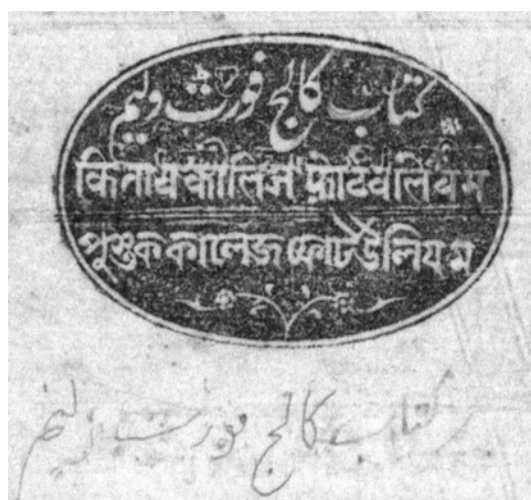 کتاب کالج فورٿ ولیم
किताब कालिज फ़ोर्टवलियम
পুস্তক কালেজ ফোর্ট উলিয়ম
کتاب کالج فورت ولیم